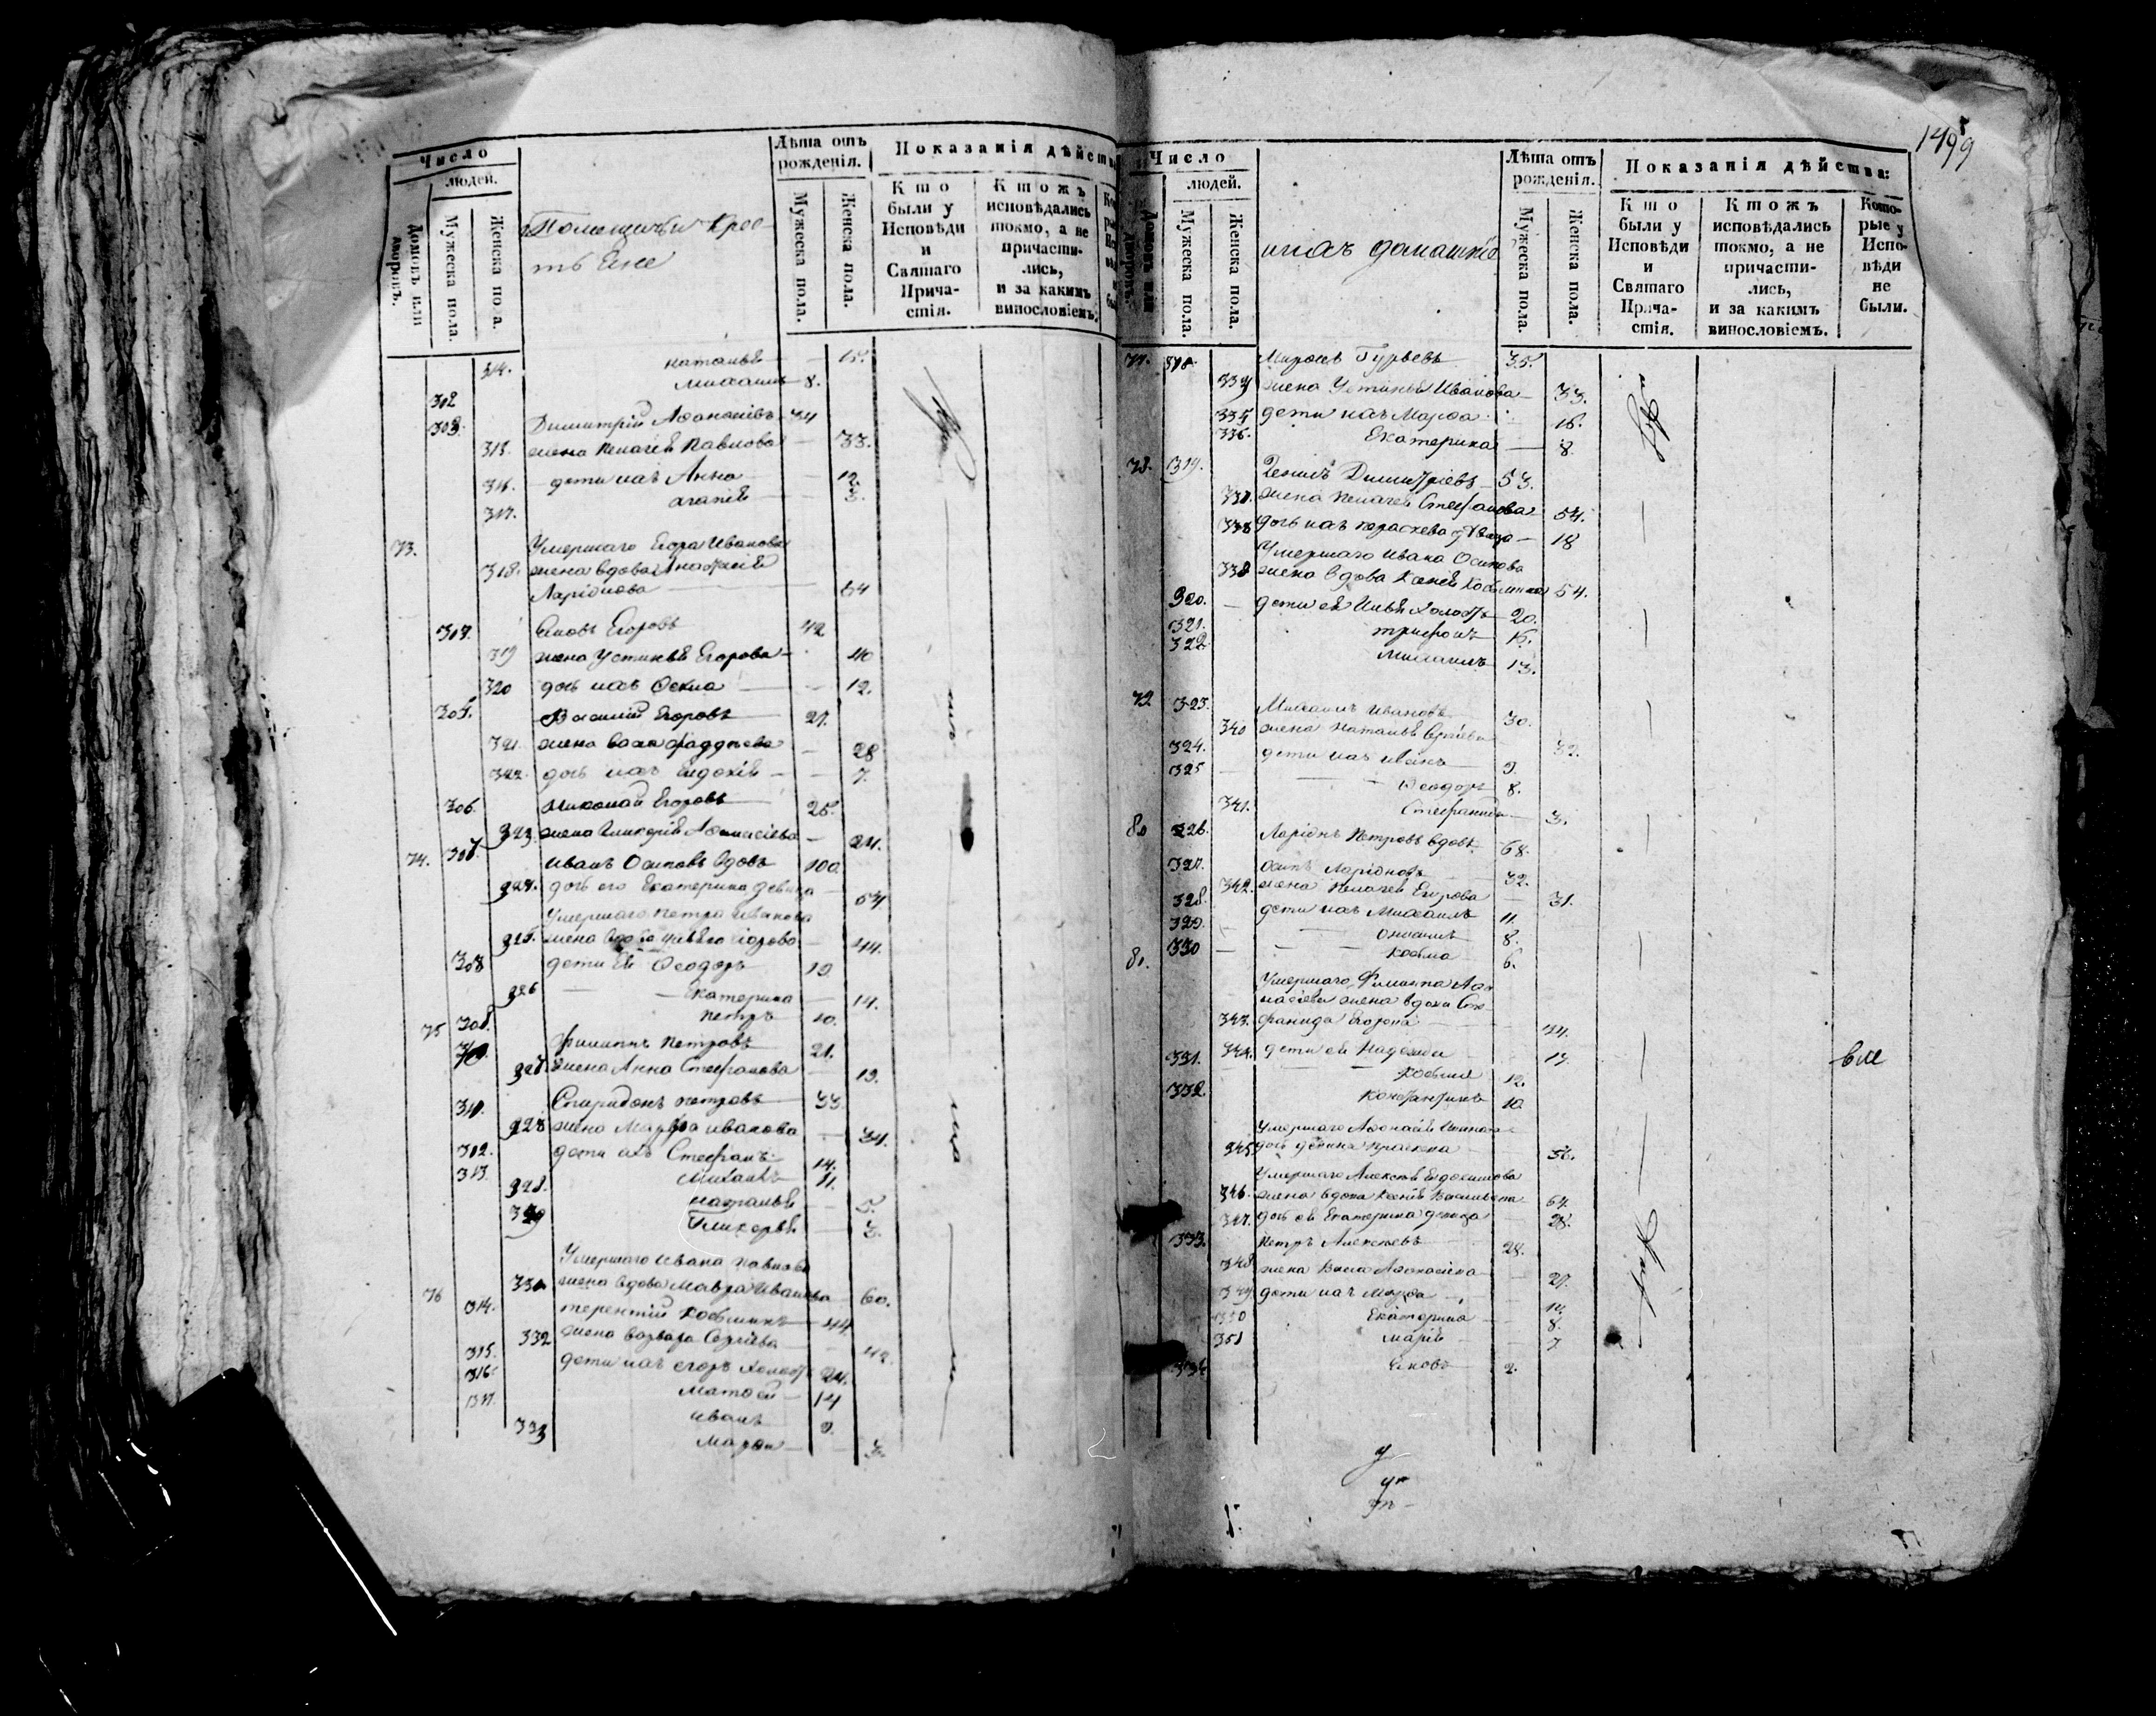 Число
людей.
Домовъ или дворовъ.
Мужеска пола.
Женска пола.
Помещичьи Крес
тьяне
Лѣта отъ рожденія.
Мужеска пола.
Женска пола.
Показанія дѣйств
Кто были у Исповѣди и Святаго Прича-стія.
Ктожъ исповѣдались токмо, а не причасти-лись, и за какимъ винословіемъ.
314. Наталья 15.
302 Михаилъ 8.
303. Димитрій Афанасіевъ 34
315. жена Пелагея Павлова 33.
316. дети ихъ Анна 12.
317. Агапія 3.
73. Умершаго Егора Иванова
318. жена вдова Анастасія
Ларіонова 64
304. Іяковъ Егоровъ 42
319 жена Устинья Егорова 40
320 дочь ихъ Фекла 12.
305. Василій Егоровъ 27.
321. жена Васса Фаддеева 28
322. дочь ихъ Евдокія 7.
306. Николай Егоровъ 25.
323. жена Гликерія Афанасіева 24.
74. 307. Иванъ Осиповъ вдовъ 100.
324. дочь его Екатерина девица 54
Умершаго Петра Иванова
325. жена вдова Егорова 44.
308 дети ея Феодоръ 19
326 Екатерина 14.
Петръ 10.
75 Филиппъ Петровъ 21.
жена Анна Стефанова 19.
311. Спиридонъ Петровъ 33
328 жена Марфа Иванова 34.
312. дети ихъ Стефанъ 14.
313. Михаилъ 11.
328. Наталья 5.
Гликерья 3.
Умершаго Ивана Павлова
жена вдова Мавра Иванова 60.
76 314. Терентій Косьминъ 44
332 жена Варвара Сергіева 42.
315. дети ихъ Егоръ холостъ 24.
316. Матфей 14
317. Иванъ 9.
333 Марфа 3.
1499
Число
людей.
Домовъ или дворовъ.
Мужеска пола.
Женска пола.
ихъ домашніе
Лѣта отъ рожденія.
Мужеска пола.
Женска пола.
Показанія дѣйства:
Кто были у Исповѣди и Святаго Прича-стія.
Ктожъ исповѣдались токмо, а не причасти-лись, и за какимъ винословіемъ.
Кото-рые у Испо-вѣди не были.
77. 318. Миронъ Гурьевъ 35.
334 жена Устинья Иванова 33.
335 дети ихъ Марфа 16.
336. Екатерина 8.
78. 319. Димитріевъ 53.
337. жена Пелагея Стефанова 54.
338 дочь ихъ Параскева девица 18
Умершаго Ивана Осипова
жена вдова Ксенія Косьмина 54.
320. дети ея Илья холостъ 20.
321. Трифонъ 16.
322 Михаилъ 13.
79 323. Михаилъ Ивановъ 30.
340 жена Наталья Сергіева 32.
324. дети ихъ Иванъ 9.
325 Феодоръ 8.
341. Стефанида 3.
80 326. Ларіонъ Петровъ вдовъ 68.
327. Осипъ Ларіоновъ 32.
342. жена Пелагея Егорова 31.
328. дети ихъ Михаилъ 11.
329. 8.
330 Косьма 6.
81. Умершаго Филиппа Афа
насіева жена вдова Сте
343. фанида Егорова 44.
344. дети ея Надежда 17.
331. Косьма 12.
332. Константинъ 10.
все
Умершаго Афанасія
345 дочь девица Праскева
Умершаго Алексея Евдокимова
346. жена вдова Ксенія Васильева 64.
347. дочь ея Екатерина девица 28.
333. Петръ Алексеевъ 28.
348 жена Васса Афанасіева 27.
349 дети ихъ Марфа 14.
350 Екатерина 8.
351 Марія 7
334 Іяковъ 2.